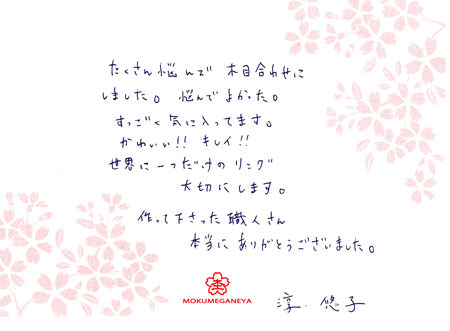 たくさん悩んで 木目合わせに
しました。 悩んでよかった。
すっごく気に入ってます。
かわいい!! キレイ!!
世界に一つだけのリング
大切にします。
作って下さった職人さん
本当にありがとうございました。
MOKUMEGANEYA
淳. 悠子